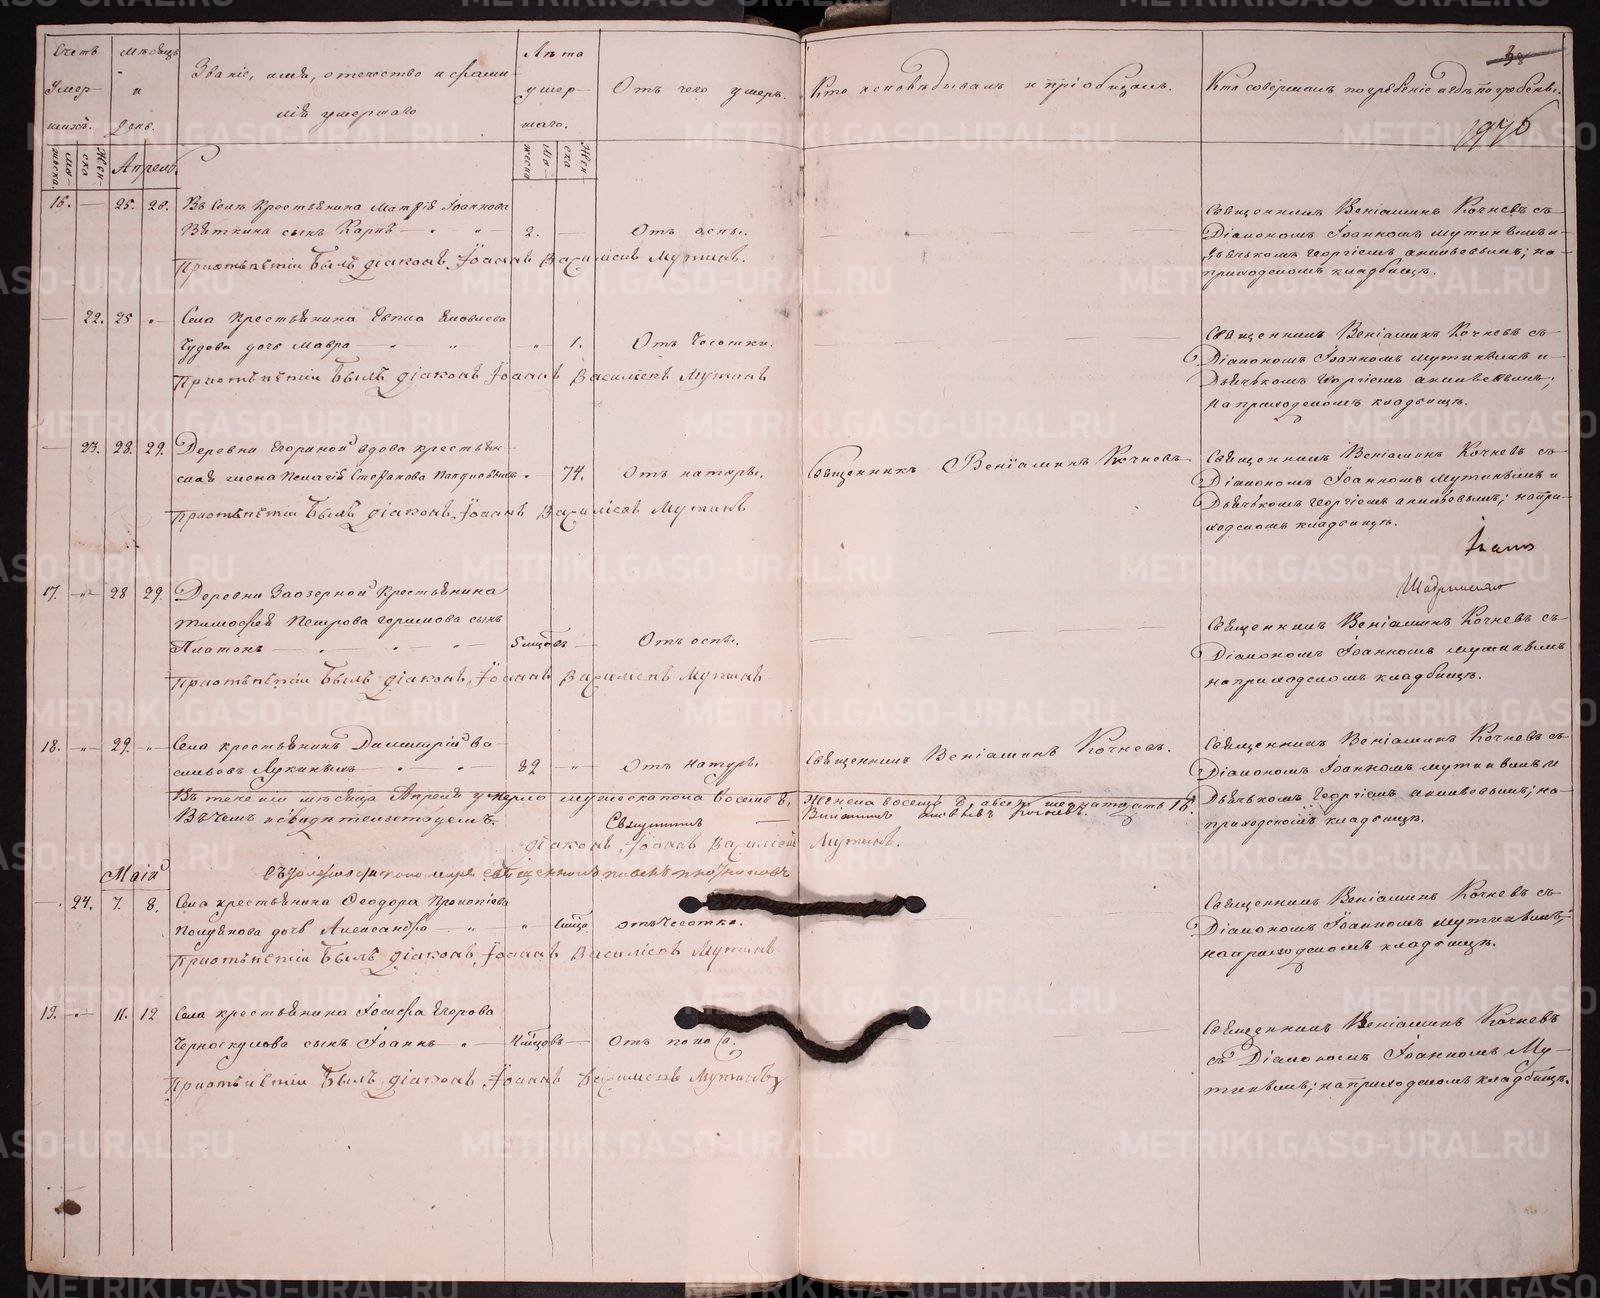 Счетъ умершихъ.
Мѣсяцъ и день.
Званіе, имя, отечество и фамилія умершаго
Лѣта умершаго.
Отъ чего умеръ.
Кто исповѣдывалъ и пріобщалъ.
Кто совершалъ погребеніе и гдѣ погребены.
Мужеска
Женска
Апрель.
Мужеска
Женска
16. — 25. 28. Въ Селѣ Крестьянина Матфія Іоаннова
Вяткина сынъ Карпъ — 2. — Отъ оспы.
При отпѣтіи былъ діаконъ Іоаннъ Василіевъ Мутинъ.
Священникъ Веніаминъ Кочневъ съ
Діакономъ Іоанномъ Мутинымъ и
Дьячькомъ Георгіемъ
приходскомъ кладбищѣ.
— 22. 25 „ Села Крестьянина
Чудова дочь Мавра — „ 1. Отъ Чесотки.
При отпѣтіи былъ діаконъ Іоаннъ Василіевъ Мутинъ
Священникъ Веніаминъ Кочневъ съ
Діакономъ Іоанномъ Мутинымъ и
Дьячькомъ Георгіемъ
на приходскомъ кладбищѣ.
— 23. 28. 29. Деревни Егориной вдова крестьян-
ская жена Пелагія Стефанова — 74. Отъ натуры.
Священникъ Веніаминъ Кочневъ
При отпѣтіи былъ діаконъ Іоаннъ Василіевъ Мутинъ
Священникъ Веніаминъ Кочневъ съ
Діакономъ Іоанномъ Мутинымъ и
Дьячькомъ Георгіемъ на при-
ходскомъ кладбищѣ.
17. — „ — 28 29. Деревни Заозерной Крестьянина
Тимофея Петрова сынъ
Платонъ — 5 мцовъ — Отъ оспы.
При отпѣтіи былъ діаконъ Іоаннъ Василіевъ Мутинъ
Священникъ Веніаминъ Кочневъ съ
Діакономъ Іоанномъ Мутинымъ
на приходскомъ кладбищѣ.
18. — „ — 29. „ Села крестьянинъ Димитрій Ва-
сильевъ Лукиныхъ — 82 — „ — Отъ натуры.
Священникъ Веніаминъ Кочневъ.
Священникъ Веніаминъ Кочневъ съ
Діакономъ Іоанномъ Мутинымъ и
Дьячькомъ Георгіемъ на-
приходскомъ кладбищѣ.
Въ теченіи мѣсяца Апреля умерло мужеска пола восемь 8, женска восемь 8, а всего шестнатцать 16.
Въ чемъ и свидѣтельствуемъ. Священникъ Веніаминъ Кочневъ.
Діаконъ Іоаннъ Василіевъ Мутинъ.
Маія
— 24. 7. 8. Села крестьянина Феодора Прокопіева
дочь Александра — „ Отъ Чесотки.
При отпѣтіи былъ діаконъ Іоаннъ Василіевъ Мутинъ
Священникъ Веніаминъ Кочневъ съ
Діакономъ Іоанномъ Мутинымъ;
на приходскомъ кладбищѣ.
19. — „ — 11. 12 Села крестьянина Іосифа Егорова
Черноскутова сынъ Іоаннъ „ 4 мцовъ — Отъ поноса.
При отпѣтіи былъ діаконъ Іоаннъ Василіевъ Мутинъ
Священникъ Веніаминъ Кочневъ
съ Діакономъ Іоанномъ Му-
тинымъ; на приходскомъ кладбищѣ.
METRIKI.GASO-URAL.RU